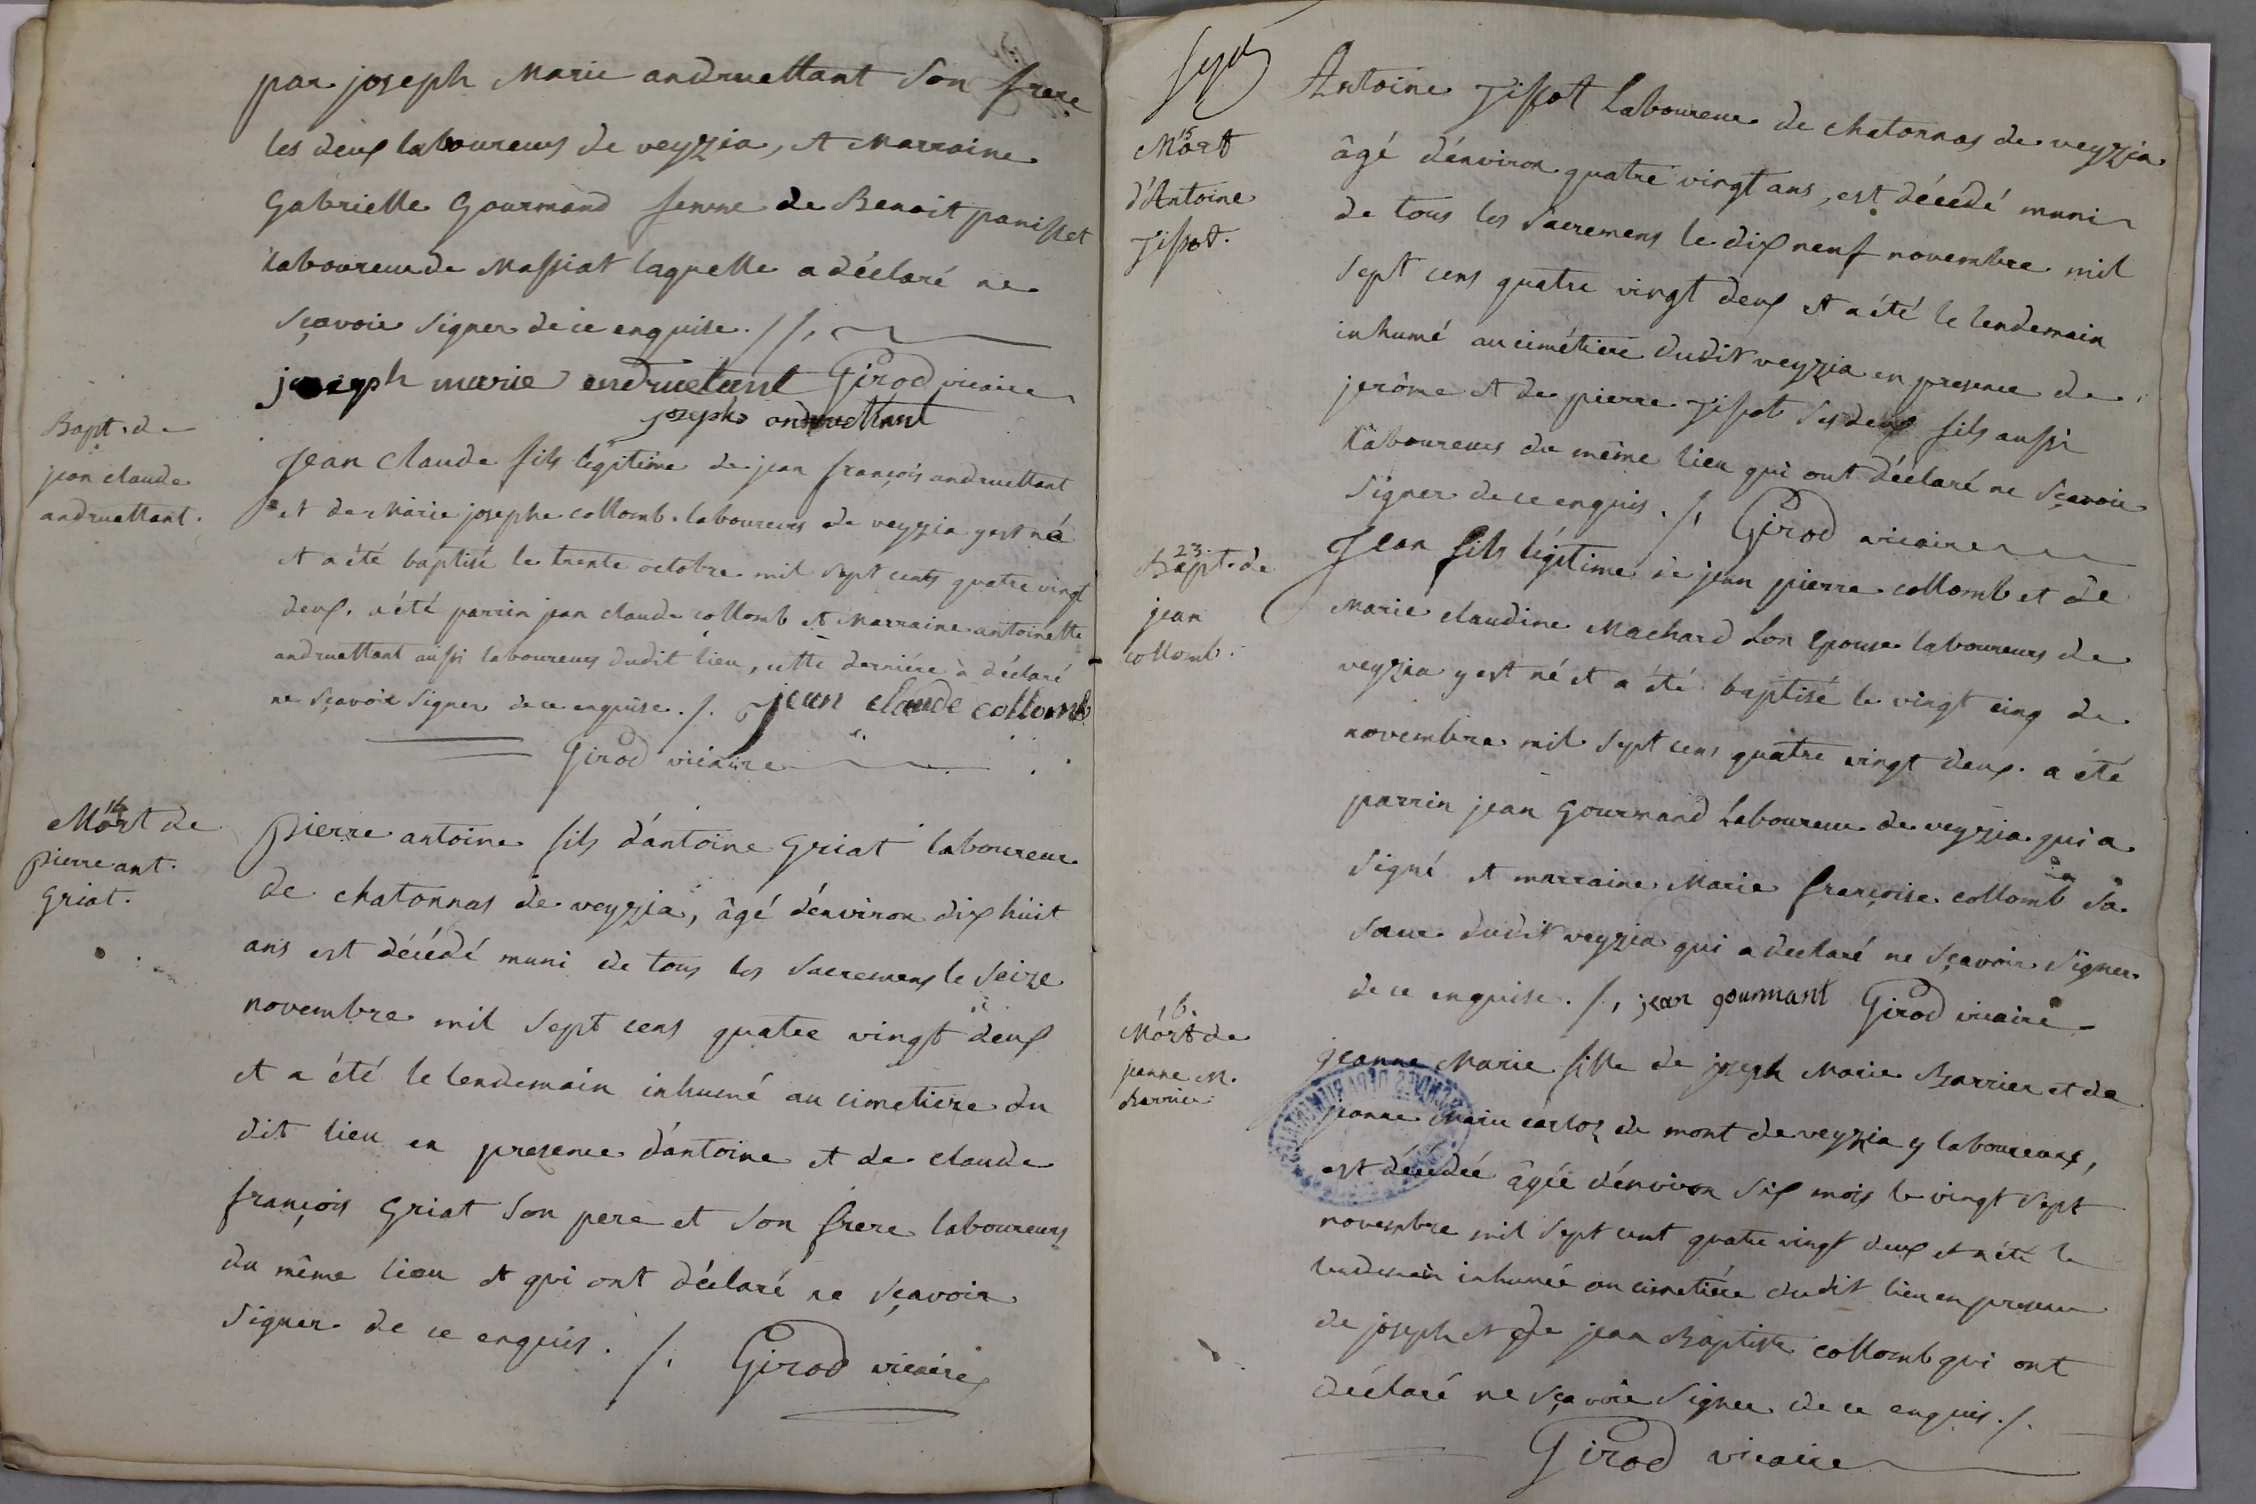 par joseph Marie andruettant son frere
les deux laboureurs de veyzia, et Marraine
Gabrielle Gourmand femme de Benoit panisset
laboureur de Massiat laquelle a déclaré ne
sçavoir signer de ce enquise. //.
joseph marie endruetant Girod vicaire
joseph andruettant
Bapt. de
jean claude
andruettant.
Jean Claude fils légitime de jean françois andruettant
et de Marie josephe collomb laboureurs de veyzia y est né
et a été baptisé le trente octobre mil sept cents quatre vingt
deux. a été parrin jean claude collomb et Marraine antoinette
andruettant aussi laboureurs dudit lieu, cette derniére à déclaré
ne sçavoir signer de ce enquise. /. jean claude collomb
Girod vicaire
16
Mort de
pierre ant.
Griat.
Pierre antoine fils d'antoine Griat laboureur
de chatonnas de veyzia, âgé d'environ dix huit
ans est décédé muni de tous les sacremens le seize
novembre mil sept cens quatre vingt deux
et a été le lendemain inhumé au cimetiere du
dit lieu en presence d'antoine et de claude
françois Griat son pere et son frere laboureurs
du même lieu et qui ont déclaré ne sçavoir
signer de ce enquis. /. Girod vicaire
sept
15
Mort
d'Antoine
Tissot.
Antoine Tissot Laboureur de chatonnas de veyzia
âgé d'environ quatre vingt ans, est décédé muni
de tous les sacremens le dix neuf novembre mil
sept cens quatre vingt deux et a été le lendemain
inhumé au cimétiere dudit veyzia en presence de
jerôme et de pierre Tissot ses deux fils aussi
laboureurs du même lieu qui ont déclaré ne sçavoir
signer de ce enquis. /. Girod vicaire
23
Bapt. de
jean
collomb.
Jean fils légitime de jean pierre collomb et de
Marie claudine Machard son Epouse laboureurs de
veyzia y est né et a été baptisé le vingt cinq de
novembre mil sept cens quatre vingt deux. a été
parrin jean Gourmand Laboureur de veyzia qui a
signé et marraine Marie françoise collomb sa
sœur dudit veyzia qui a declaré ne sçavoir signer
de ce enquise. /. jean gourmant Girod vicaire
16.
Mort de
jeanne M.
Barrier
jeanne Marie fille de joseph Marie Barrier et de
jeanne Marie carloz du mont de veyzia y laboureurs,
est décedée âgée d'environ six mois le vingt sept
novembre mil sept cent quatre vingt deux et a été le
lendemain inhumée au cimetière dudit lieu en presence
de joseph et de jean Baptiste collomb qui ont
déclaré ne sçavoir signer de ce enquis. /.
Girod vicaire